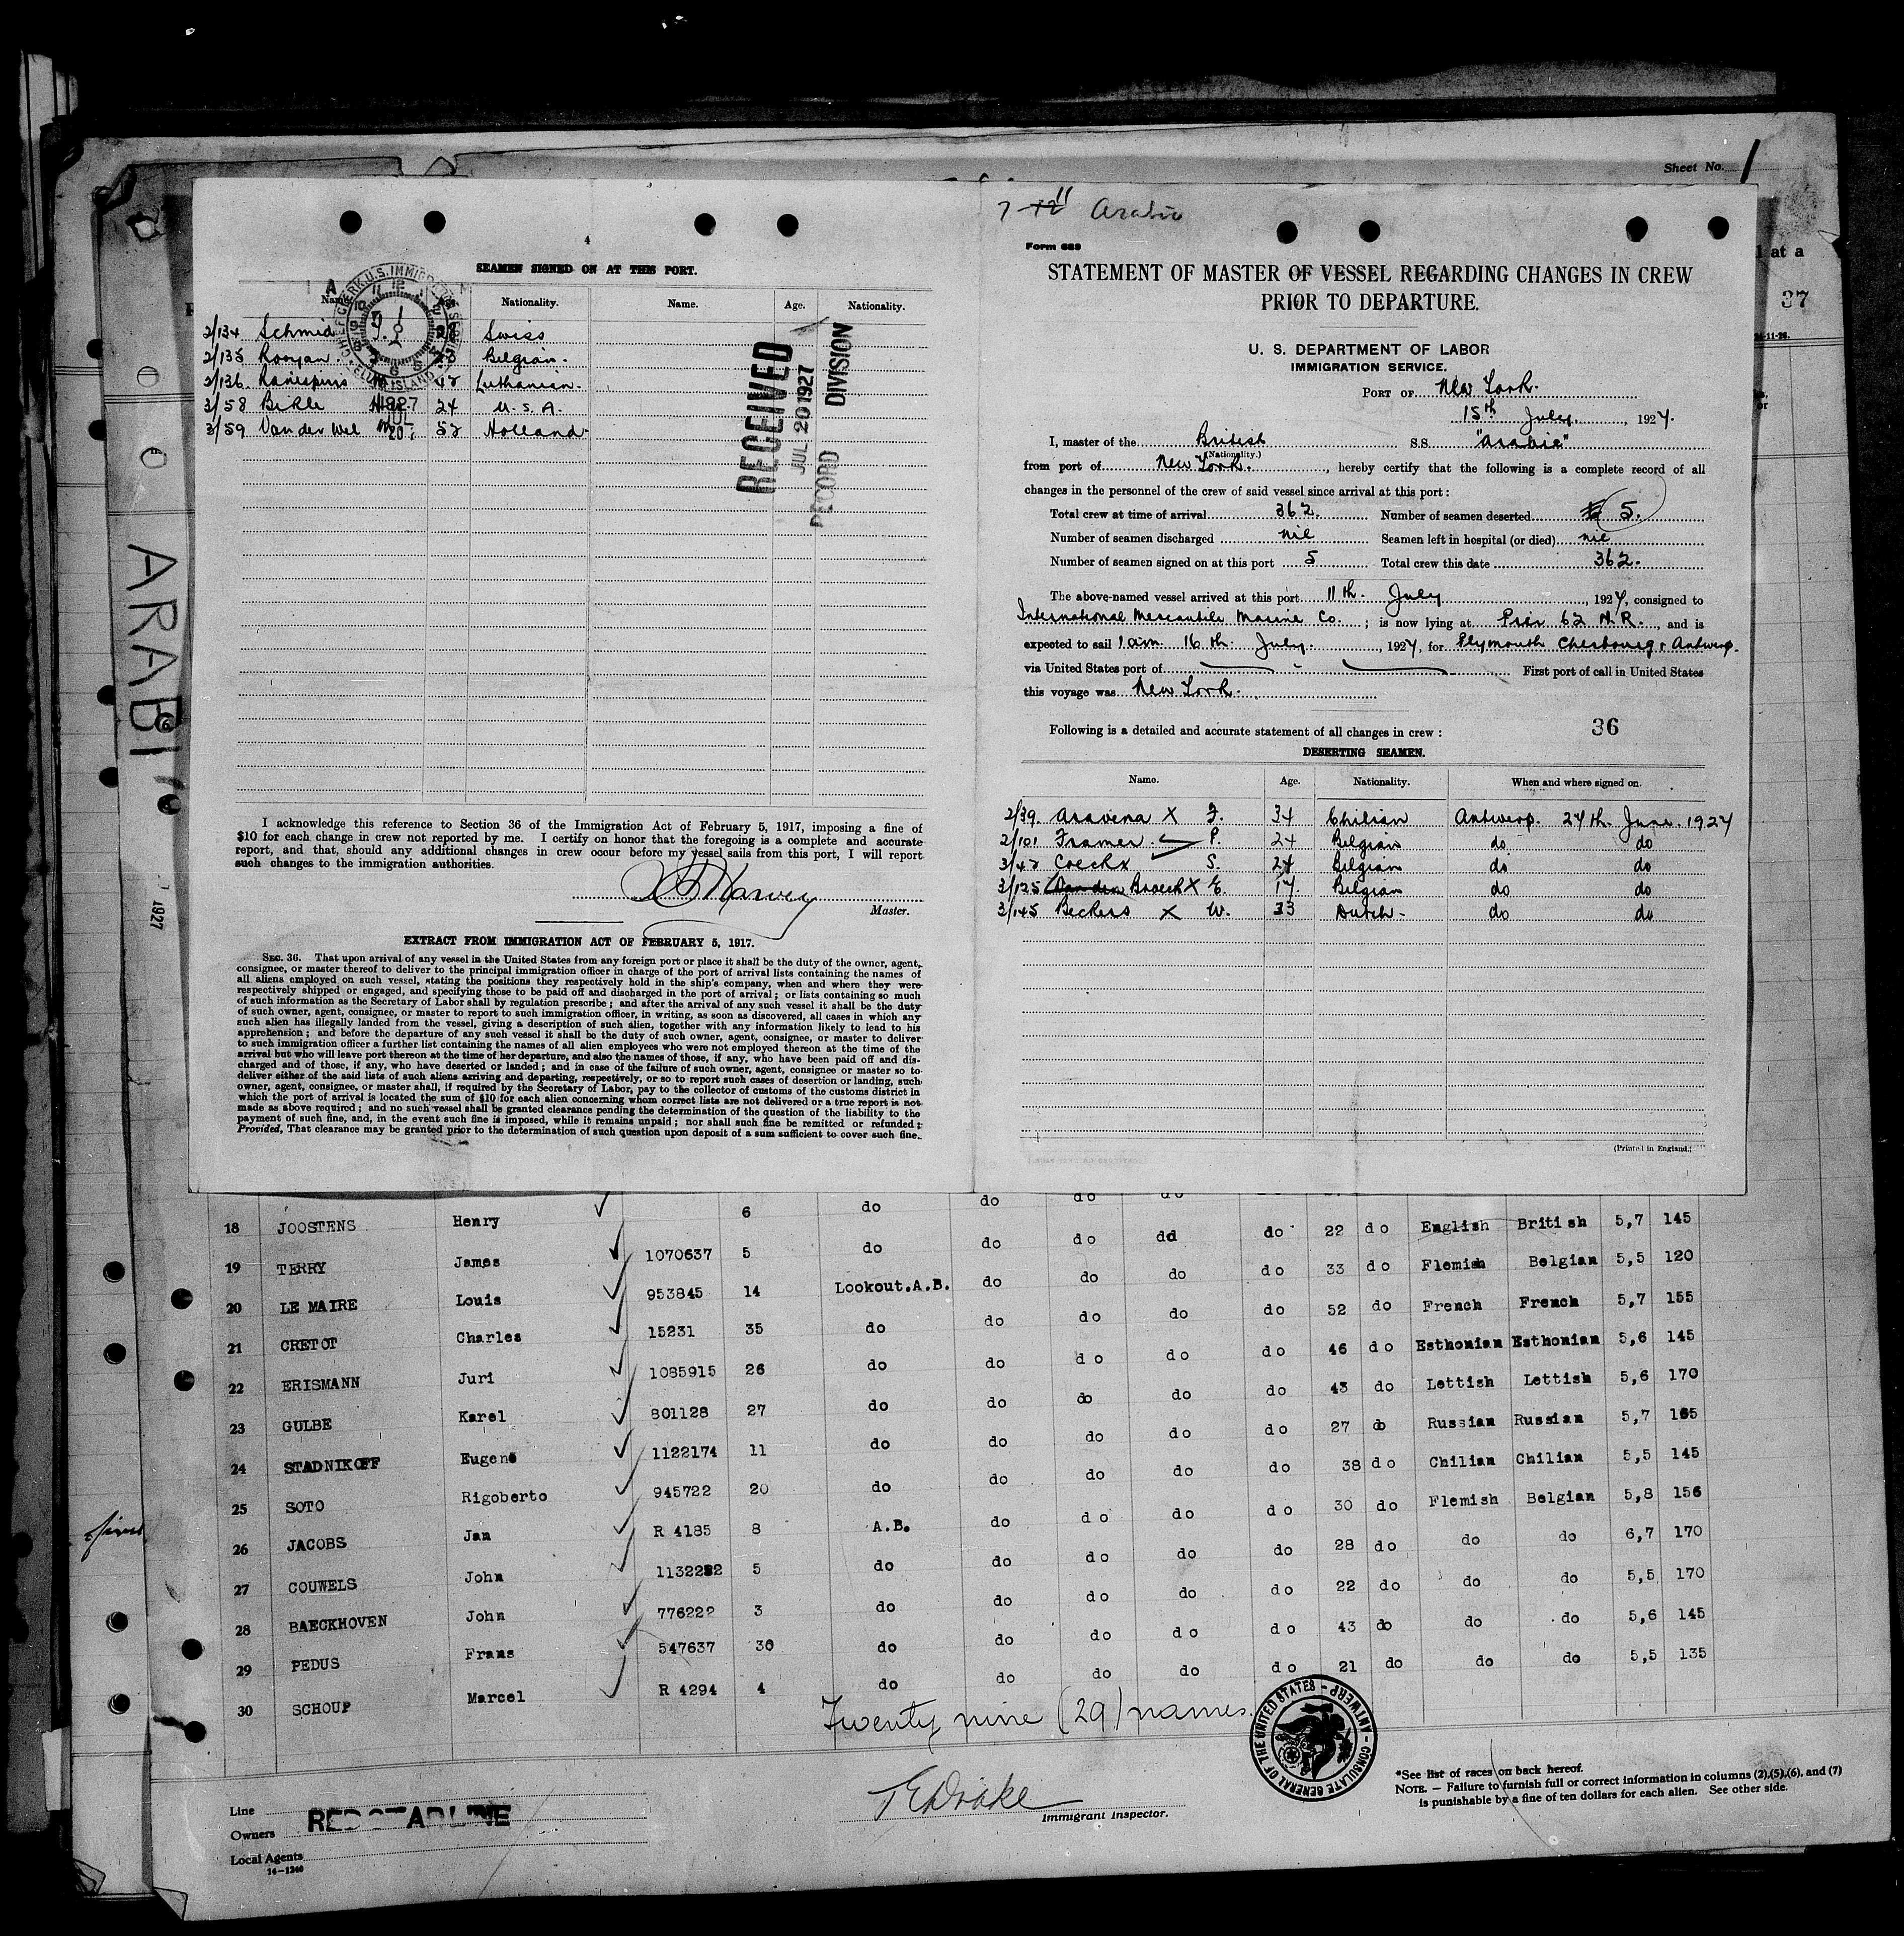 Sheet No. 1
l at a
37
ARABI
1927
4
SEAMEN SIGNED ON AT THIS PORT.
Name. Nationality. Name. Age. Nationality.
2/134 Schmid Swiss
2/135 Rooyan. Belgian.
2/136. 42
3/58 Bikle 24 U.S.A.
3/59 Van der Wel 52 Holland
CHIEF CLERK U.S. IMMIGRATION SERVICE ELLIS ISLAND
1927
JUL
20
RECEIVED
JUL 20 1927
RECORD DIVISION
I acknowledge this reference to Section 36 of the Immigration Act of February 5, 1917, imposing a fine of
$10 for each change in crew not reported by me. I certify on honor that the foregoing is a complete and accurate
report, and that, should any additional changes in crew occur before my vessel sails from this port, I will report
such changes to the immigration authorities.
Harvey
Master.
EXTRACT FROM IMMIGRATION ACT OF FEBRUARY 5, 1917.
SEC. 36. That upon arrival of any vessel in the United States from any foreign port or place it shall be the duty of the owner, agent,
consignee, or master thereof to deliver to the principal immigration officer in charge of the port of arrival lists containing the names of
all aliens employed on such vessel, stating the positions they respectively hold in the ship's company, when and where they were
respectively shipped or engaged, and specifying those to be paid off and discharged in the port of arrival; or lists containing so much
of such information as the Secretary of Labor shall by regulation prescribe; and after the arrival of any such vessel it shall be the duty
of such owner, agent, consignee, or master to report to such immigration officer, in writing, as soon as discovered, all cases in which any
such alien has illegally landed from the vessel, giving a description of such alien, together with any information likely to lead to his
apprehension; and before the departure of any such vessel it shall be the duty of such owner, agent, consignee, or master to deliver
to such immigration officer a further list containing the names of all alien employees who were not employed thereon at the time of the
arrival but who will leave port thereon at the time of her departure, and also the names of those, if any, who have been paid off and dis-
charged and of those, if any, who have deserted or landed; and in case of the failure of such owner, agent, consignee or master so to
deliver either of the said lists of such aliens arriving and departing, respectively, or so to report such cases of desertion or landing, such
owner, agent, consignee, or master shall, if required by the Secretary of Labor, pay to the collector of customs of the customs district in
which the port of arrival is located the sum of $10 for each alien concerning whom correct lists are not delivered or a true report is not
made as above required; and no such vessel shall be granted clearance pending the determination of the question of the liability to the
payment of such fine, and, in the event such fine is imposed, while it remains unpaid; nor shall such fine be remitted or refunded:
Provided, That clearance may be granted prior to the determination of such question upon deposit of a sum sufficient to cover such fine.
7-12 11 Arabic
Form 689
STATEMENT OF MASTER OF VESSEL REGARDING CHANGES IN CREW
PRIOR TO DEPARTURE.
U. S. DEPARTMENT OF LABOR
IMMIGRATION SERVICE.
PORT OF New York.
15th July, 1927.
I, master of the British S.S. "Arabic"
(Nationality.)
from port of New York., hereby certify that the following is a complete record of all
changes in the personnel of the crew of said vessel since arrival at this port:
Total crew at time of arrival 362. Number of seamen deserted 5.
Number of seamen discharged nil Seamen left in hospital (or died) nil
Number of seamen signed on at this port 5 Total crew this date 362.
The above-named vessel arrived at this port 11th. July, 1927, consigned to
International Mercantile Marine Co.; is now lying at Pier 62 N.R., and is
expected to sail 1 a.m. 16th. July., 1927, for Plymouth Cherbourg & Antwerp.
via United States port of First port of call in United States
this voyage was New York.
Following is a detailed and accurate statement of all changes in crew: 36
DESERTING SEAMEN.
Name. Age. Nationality. When and where signed on.
2/39. Aravena X J. 34 Chilian Antwerp. 24th. June. 1927
2/101 Framer. P. 24 Belgian do do
3/42 Coeckx S. 24 Belgian do do
3/125 Van den Broeck X E. 17. Belgian do do
3/145 Beckers X W. 33 Dutch - do do
(Printed in England.)
18 JOOSTENS Henry 6 do do do do
19 TERRY James 1070637 5 do do do dd do 22 do English British 5,7 145
20 LE MAIRE Louis 953845 14 Lookout.A.B. do do do do 33 do Flemish Belgian 5,5 120
21 CRETOT Charles 15231 35 do do do do do 52 do French French 5,7 155
22 ERISMANN Juri 1085915 26 do do do do do 46 do Esthonian Esthonian 5,6 145
23 GULBE Karel 801128 27 do do do do do 43 do Lettish Lettish 5,6 170
24 STADNIKOFF Eugene 1122174 11 do do do do do 27 do Russian Russian 5,7 165
25 SOTO Rigoberto 945722 20 do do do do do 38 do Chilian Chilian 5,5 145
26 JACOBS Jan R 4185 8 A.B. do do do do 30 do Flemish Belgian 5,8 156
27 COUWELS John 1132282 5 do do do do do 28 do do do 6,7 170
28 BAECKHOVEN John 776222 3 do do do do do 22 do do do 5,5 170
29 PEDUS Frans 547637 30 do do do do do 43 do do do 5,6 145
30 SCHOUP Marcel R 4294 4 do do do do do 21 do do do 5,5 135
Twenty nine (29) names.
CONSULATE GENERAL OF THE UNITED STATES - ANTWERP -
T E Drake
Immigrant Inspector.
*See list of races on back hereof.
NOTE. — Failure to furnish full or correct information in columns (2),(5),(6), and (7)
is punishable by a fine of ten dollars for each alien. See other side.
Line
Owners RED STAR LINE
Local Agents
14—1240